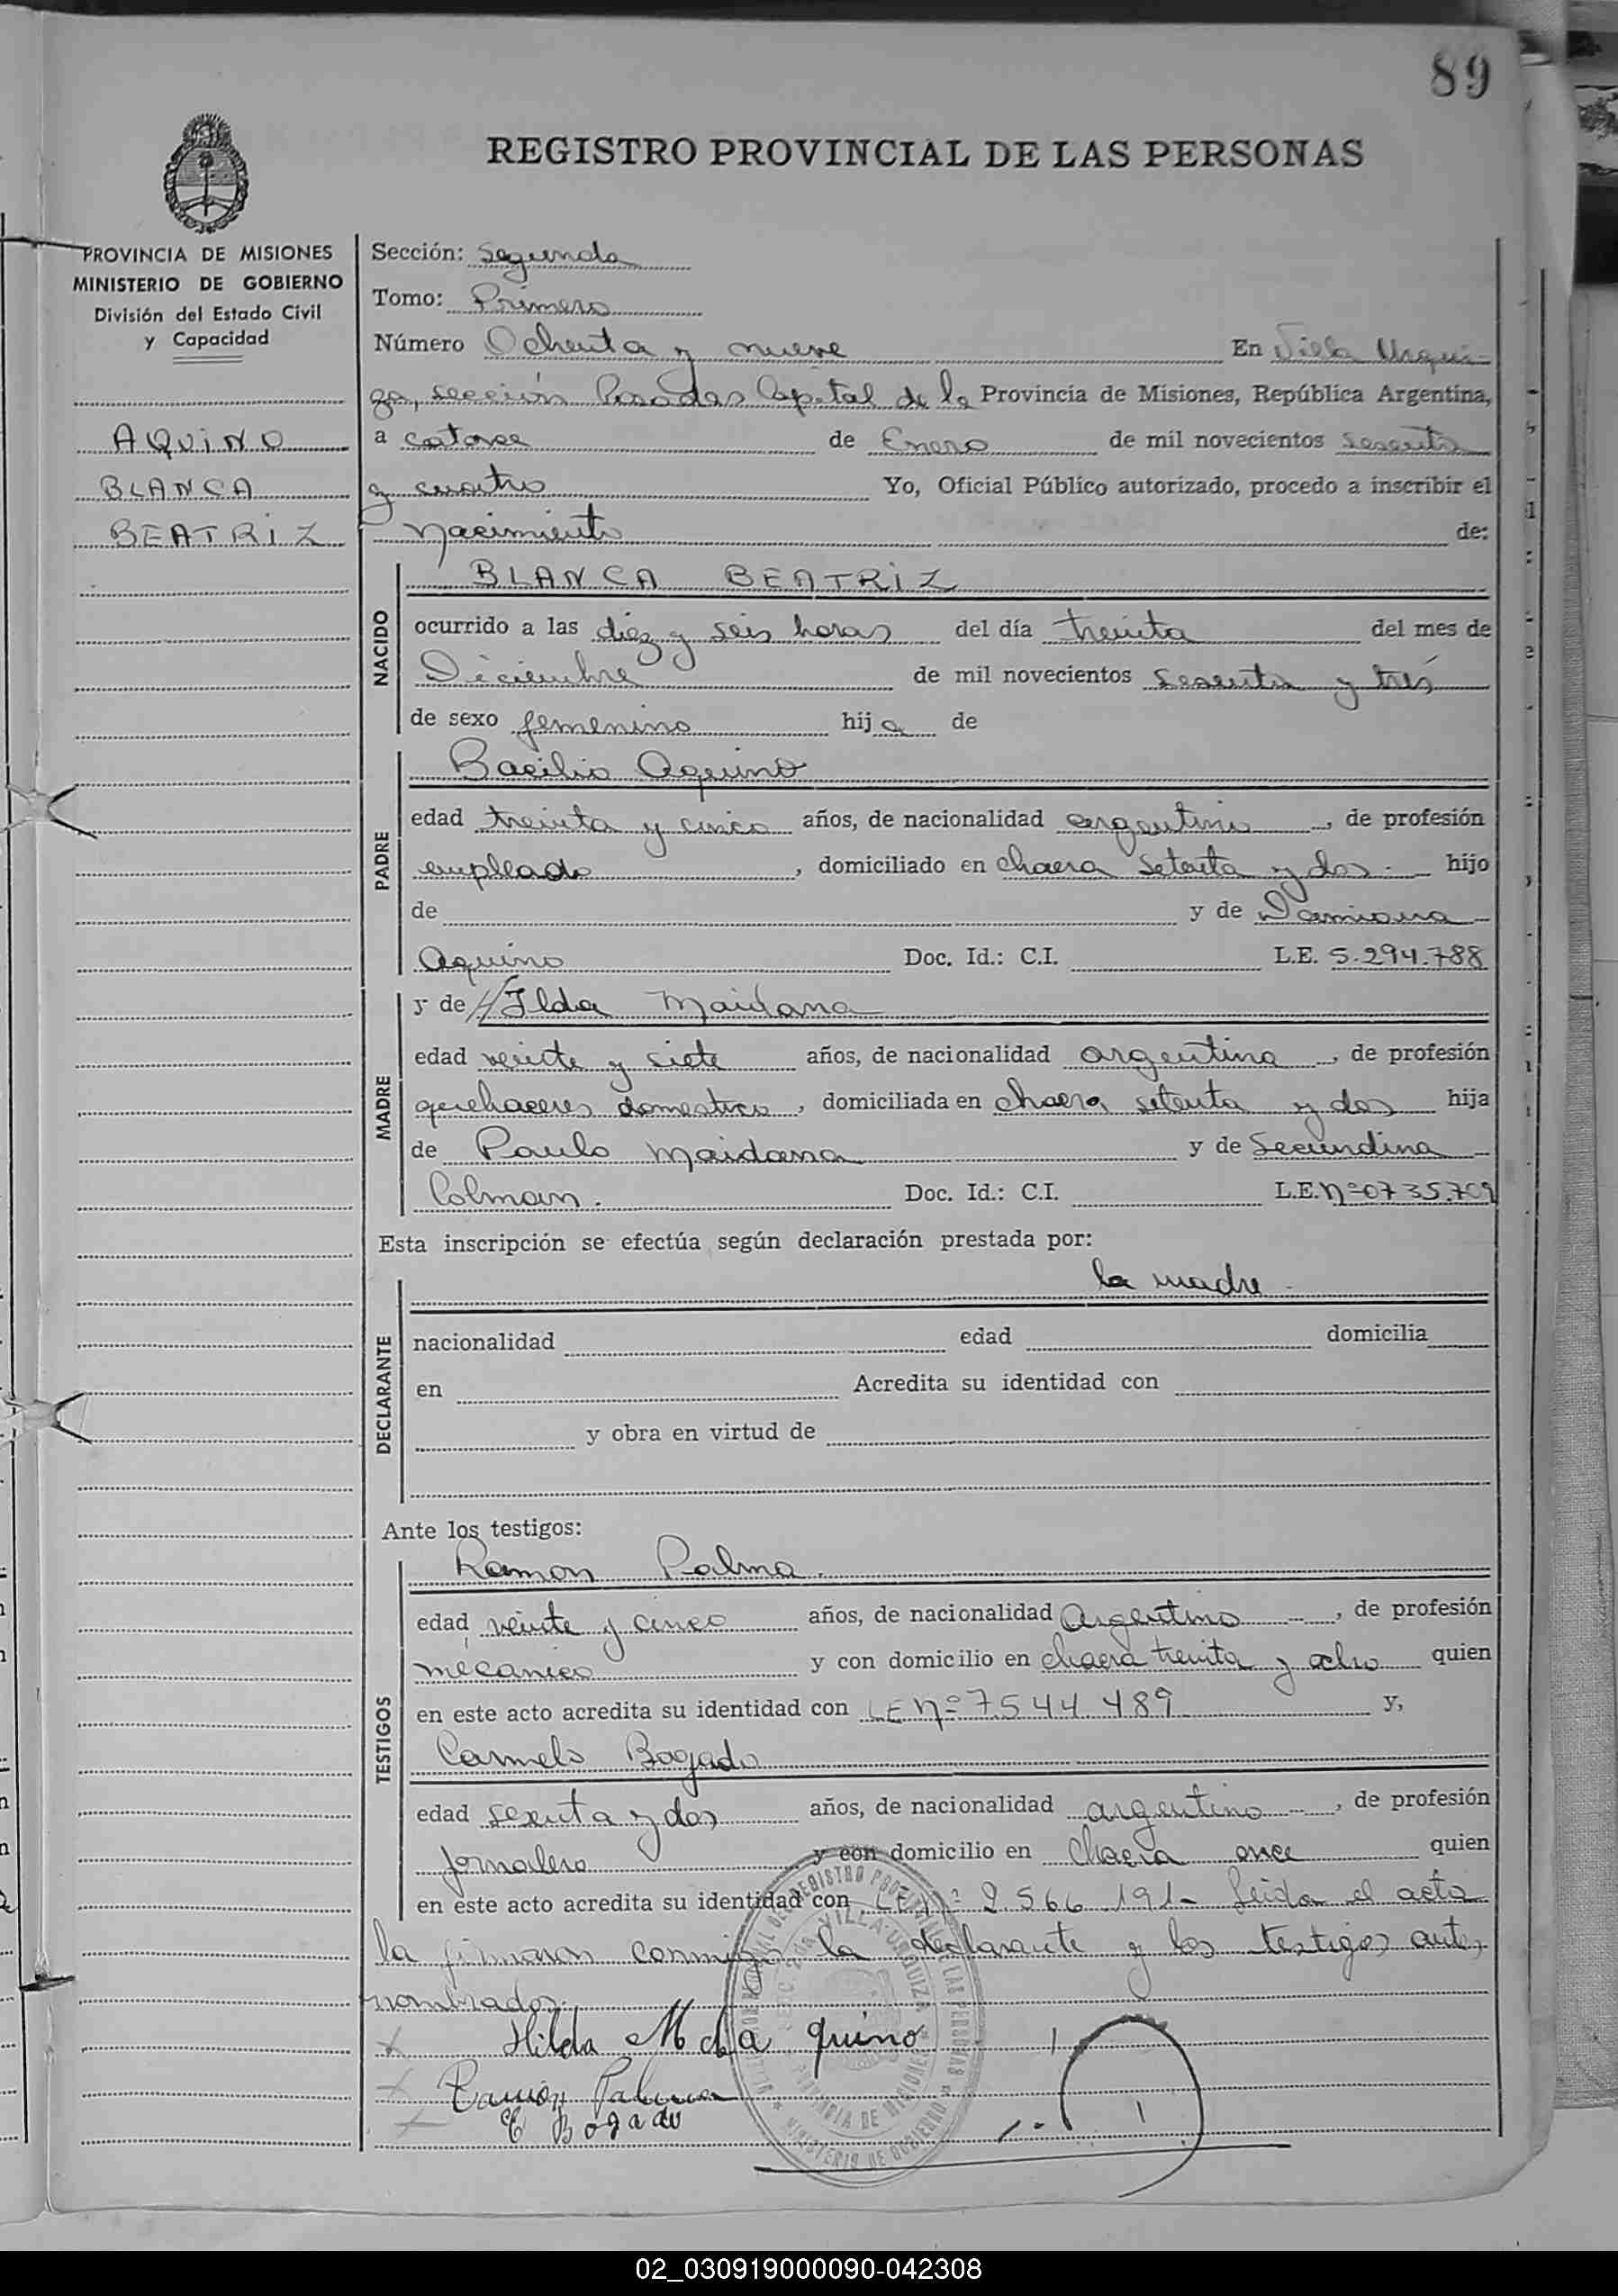 89
REGISTRO PROVINCIAL DE LAS PERSONAS
PROVINCIA DE MISIONES
MINISTERIO DE GOBIERNO
División del Estado Civil
y Capacidad
AQUINO
BLANCA
BEATRIZ
Sección: Segunda
Tomo: Primero
Número Ochenta y nueve En Villa Urqui-
za, sección Posadas Capital de la Provincia de Misiones, República Argentina,
a catorce de Enero de mil novecientos sesenta
y cuatro Yo, Oficial Público autorizado, procedo a inscribir el
nacimiento de:
NACIDO
BLANCA BEATRIZ
ocurrido a las diez y seis horas del día treinta del mes de
Diciembre de mil novecientos sesenta y trés
de sexo femenino hija de
PADRE
Bacilio Aquino
edad treinta y cinco años, de nacionalidad argentino, de profesión
empleado, domiciliado en chacra setenta y dos.- hijo
de y de Damiana
Aquino Doc. Id.: C.I. L.E. 5.294.788
MADRE
y de Ilda Maidana
edad veinte y siete años, de nacionalidad argentina, de profesión
quehaceres domestico, domiciliada en chacra setenta y dos hija
de Paulo Maidana y de Secundina
Colman. Doc. Id.: C.I. L.E. Nº 0735.709
Esta inscripción se efectúa según declaración prestada por:
DECLARANTE
la madre.
nacionalidad edad domicilia
en Acredita su identidad con
y obra en virtud de
Ante los testigos:
TESTIGOS
Ramon Palma.
edad veinte y cinco años, de nacionalidad Argentino, de profesión
mecanico y con domicilio en chacra treinta y ocho quien
en este acto acredita su identidad con LE Nº 7.544.489 y,
Carmelo Bogado
edad sesenta y dos años, de nacionalidad argentino, de profesión
Jornalero y con domicilio en Chacra once quien
en este acto acredita su identidad con LE Nº 2.566.191- Leida el acta
la firmaron conmigo la declarante y los testigos antes
nombrados.
Hilda M d a quino
Ramón Palma
C Bogado
VILLA URQUIZA
PROVINCIA DE MISIONES
MINISTERIO DE GOBIERNO
02_030919000090-042308